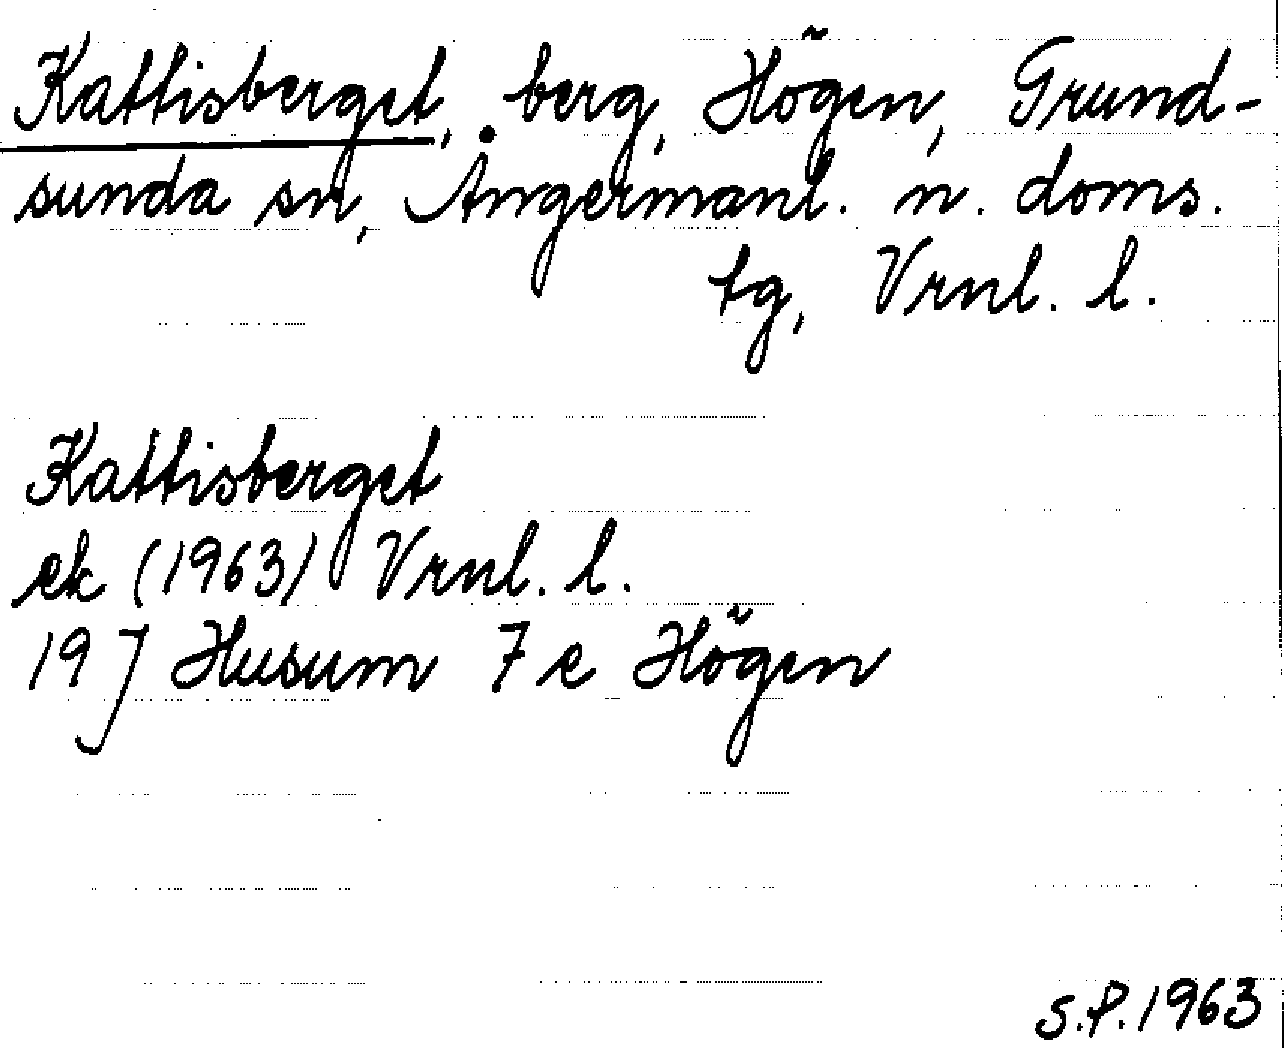 Kattisberget, berg, Högen, Grund-
sunda sn, Ångermanl. n. doms.
tg, Vrnl. l.
Kattisberget
ek (1963) Vrnl. l.
19 J Husum 7 e Högen
S.P. 1963